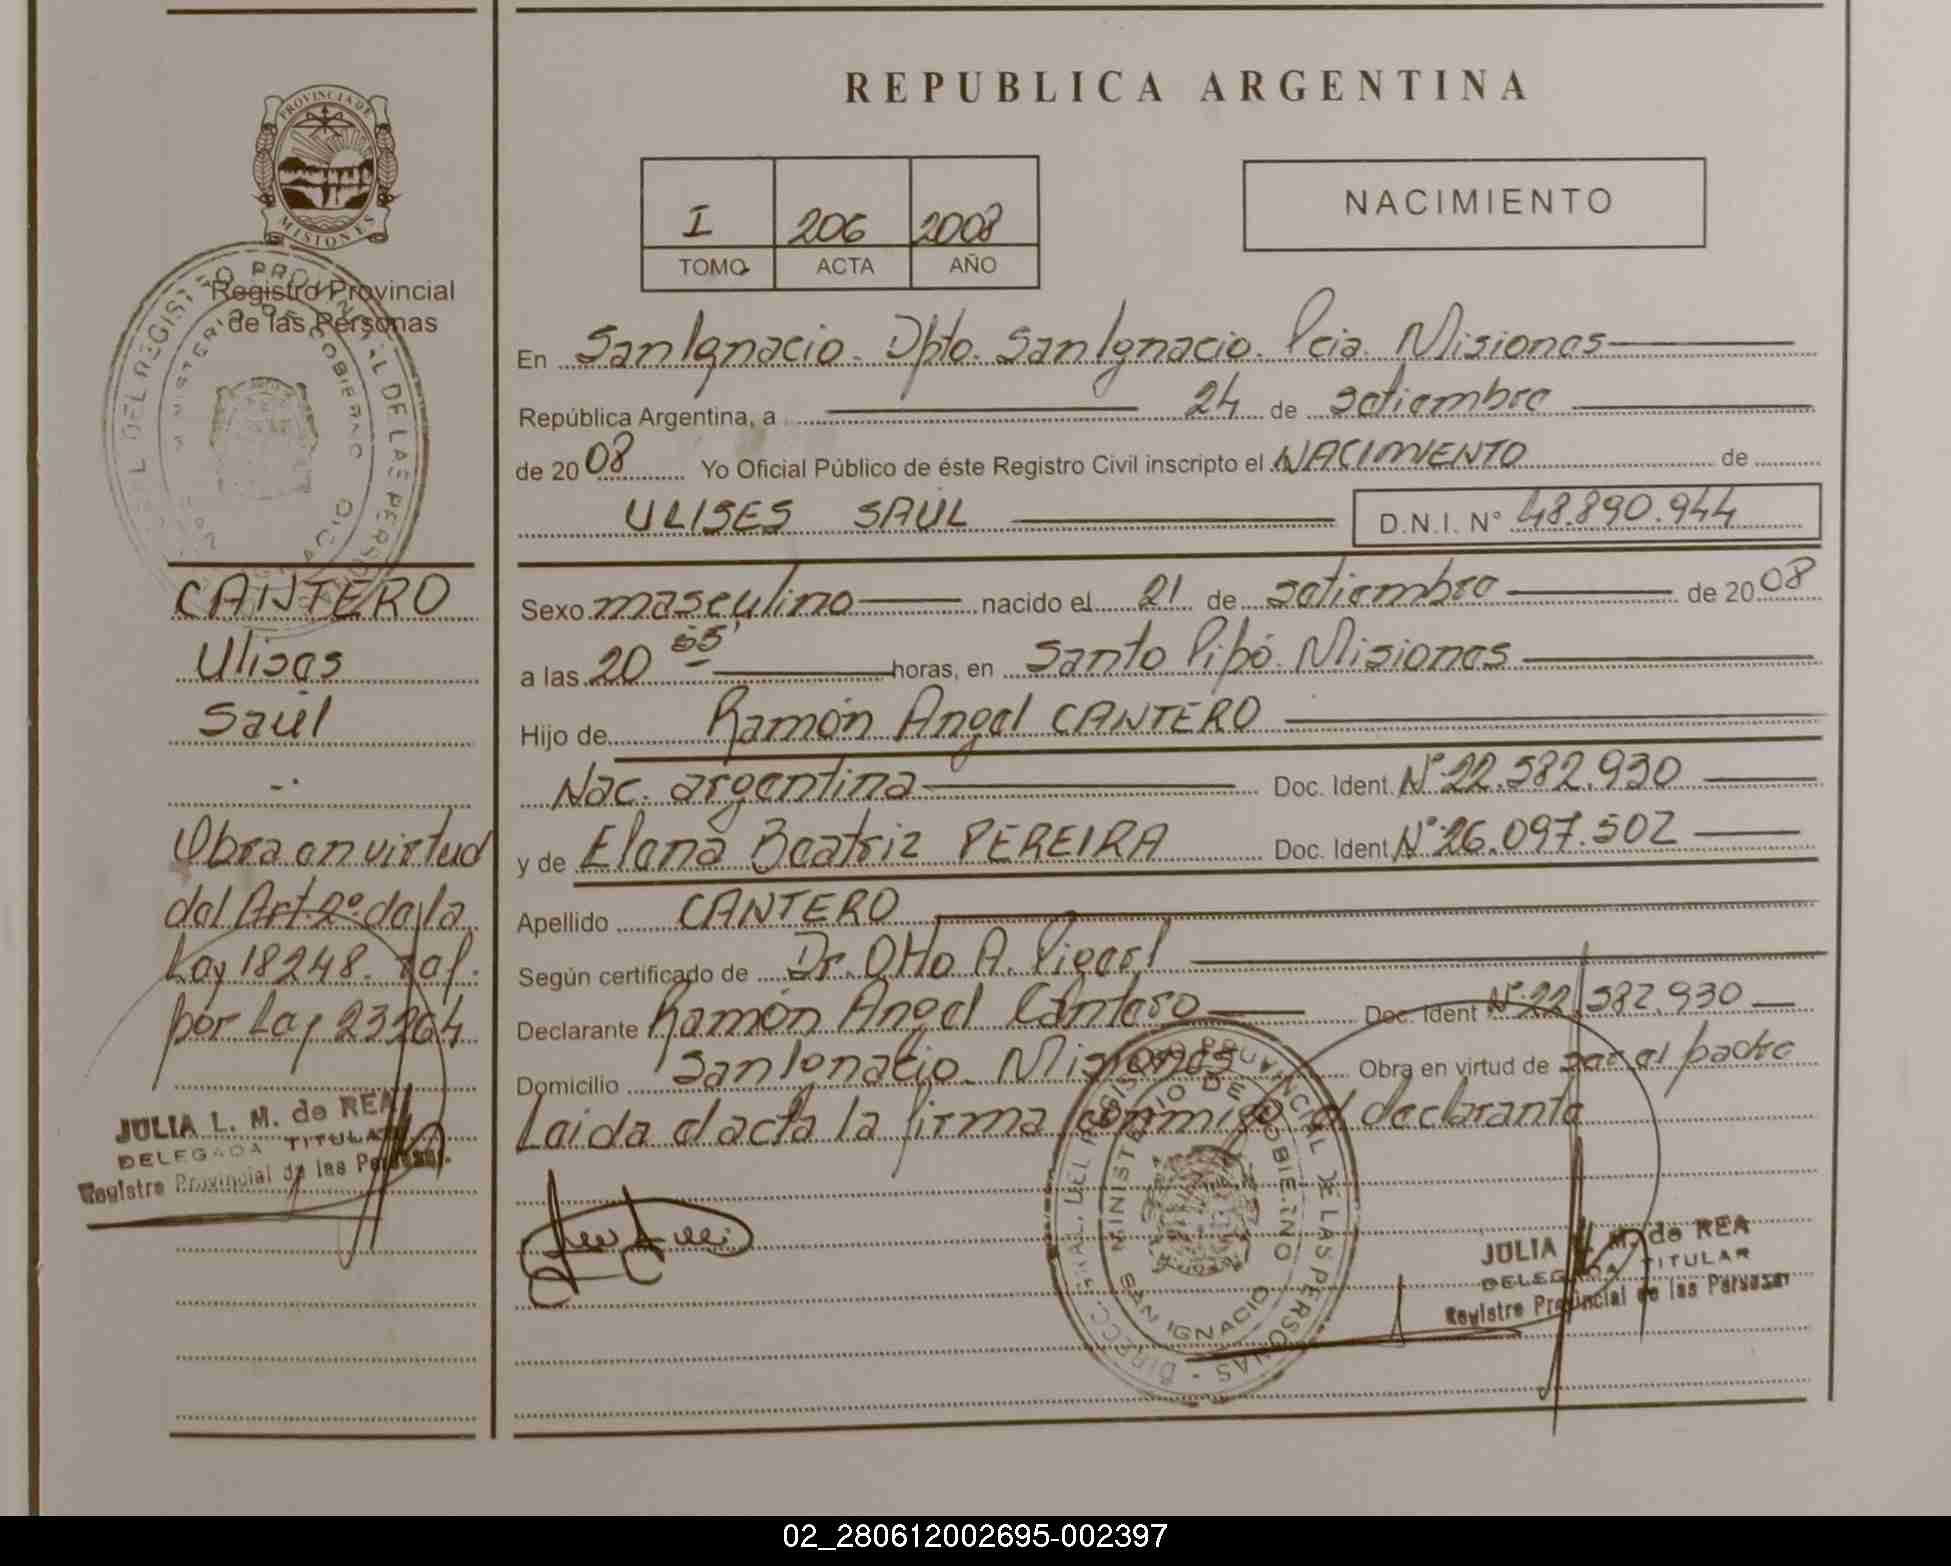 REPUBLICA ARGENTINA
PROVINCIA DE
MISIONES
Registro Provincial
de las Personas
I 206 2008
TOMO ACTA AÑO
NACIMIENTO
En San Ignacio. Dpto. San Ignacio. Pcia. Misiones
República Argentina, a 24 de setiembre
de 2008 Yo Oficial Público de éste Registro Civil inscripto el NACIMIENTO de
ULISES SAÚL D.N.I. N° 48.890.944
Sexo masculino nacido el 21 de setiembre de 2008
a las 20 55' horas, en Santo Pipó. Misiones
Hijo de Ramón Angel CANTERO
Nac. argentina Doc. Ident. N° 22.582.930
y de Elena Beatriz PEREIRA Doc. Ident. N° 26.097.502
Apellido CANTERO
Según certificado de Dr. Otto A.
Declarante Ramón Angel Cantero Doc. Ident N° 22.582.930
Domicilio San Ignacio. Misiones Obra en virtud de ser el padre
Leida el acta la firma conmigo el declarante
CANTERO
Ulises
Saúl
-.
Obra en virtud
del Art. 2° de la
Ley 18248.
por Ley 23264
JULIA L. M. de REA
DELEGADA TITULAR
Registro Provincial de las Personas
DIRECC. GRAL. DEL REGISTRO PROVINCIAL DE LAS PERSONAS
MINISTERIO DE GOBIERNO
SAN IGNACIO
JULIA L. M. de REA
DELEGADA TITULAR
Registro Provincial de las Personas
02_280612002695-002397